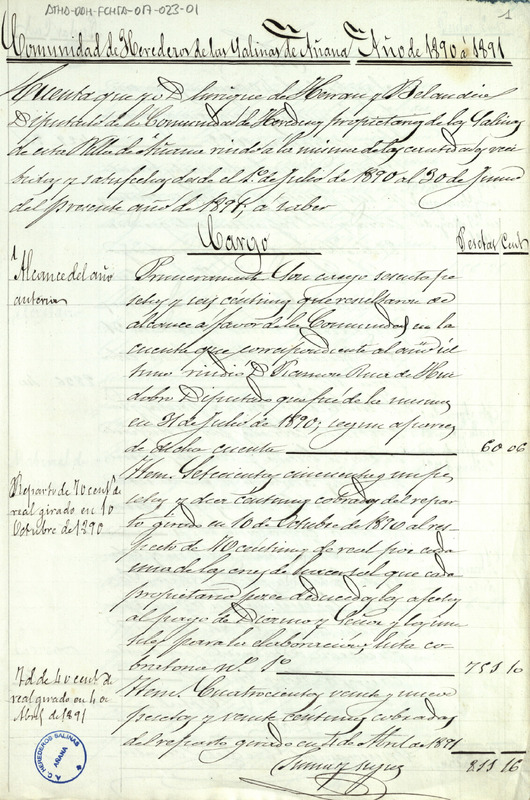 ATHA-DAH-FCHSA-017-023-01
1
Comunidad de Herederos de las Salinas de Añana Año de 1890 á 1891
Cuenta que yo D. Enrique de Herran y Belandia
Diputado de la Comunidad de Hereds y propietarios de las Salinas
de esta Villa de Añana rindo á la misma de las cantidades reci
bidas y satisfechas desde el 1º de Julio de 1890 al 30 de Junio
del presente año de 1891, á saber
Cargo
Pesetas Cent
1
Alcance del año
anterior
Primeramente Son cargo sesenta pe
setas y seis centimos que resultaron de
alcance á favor de la Comunidad en la
cuenta que correspondiente al año úl
timo rindió D. Ramon Ruiz de
dobro Diputado que fué de la misma
en 31 de Julio de 1890, segun aparece
de dicha cuenta
60 06
Reparto de 70 cents de
real girado en 10
Octubre de 1890
Item. Setecientas cincuenta y una pe
setas y diez centimos cobradas del repar
to girado en 10 de Octubre de 1890 al res
pecto de centimos de real por cada
una de las eras de hacer sal que cada
propietario posee deducidas las afectas
al pago de Diezmo y las inu
tiles para la elaboracion, lista co
bratoria nº 1º
751 10
Id. de 40 cents de
real girado en 4 de
Abril de 1891
Item. Cuatrocientas veinte y nueve
pesetas y veinte centimos cobradas
del reparto girado en 4 de Abril de 1891
Suma y sigue
811 16
A.C. HEREDEROS SALINAS
AÑANA